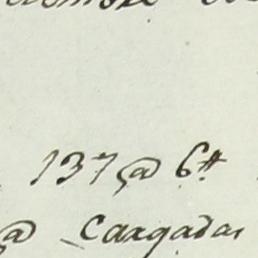 137 @ 6 ℔
@ Cargadas